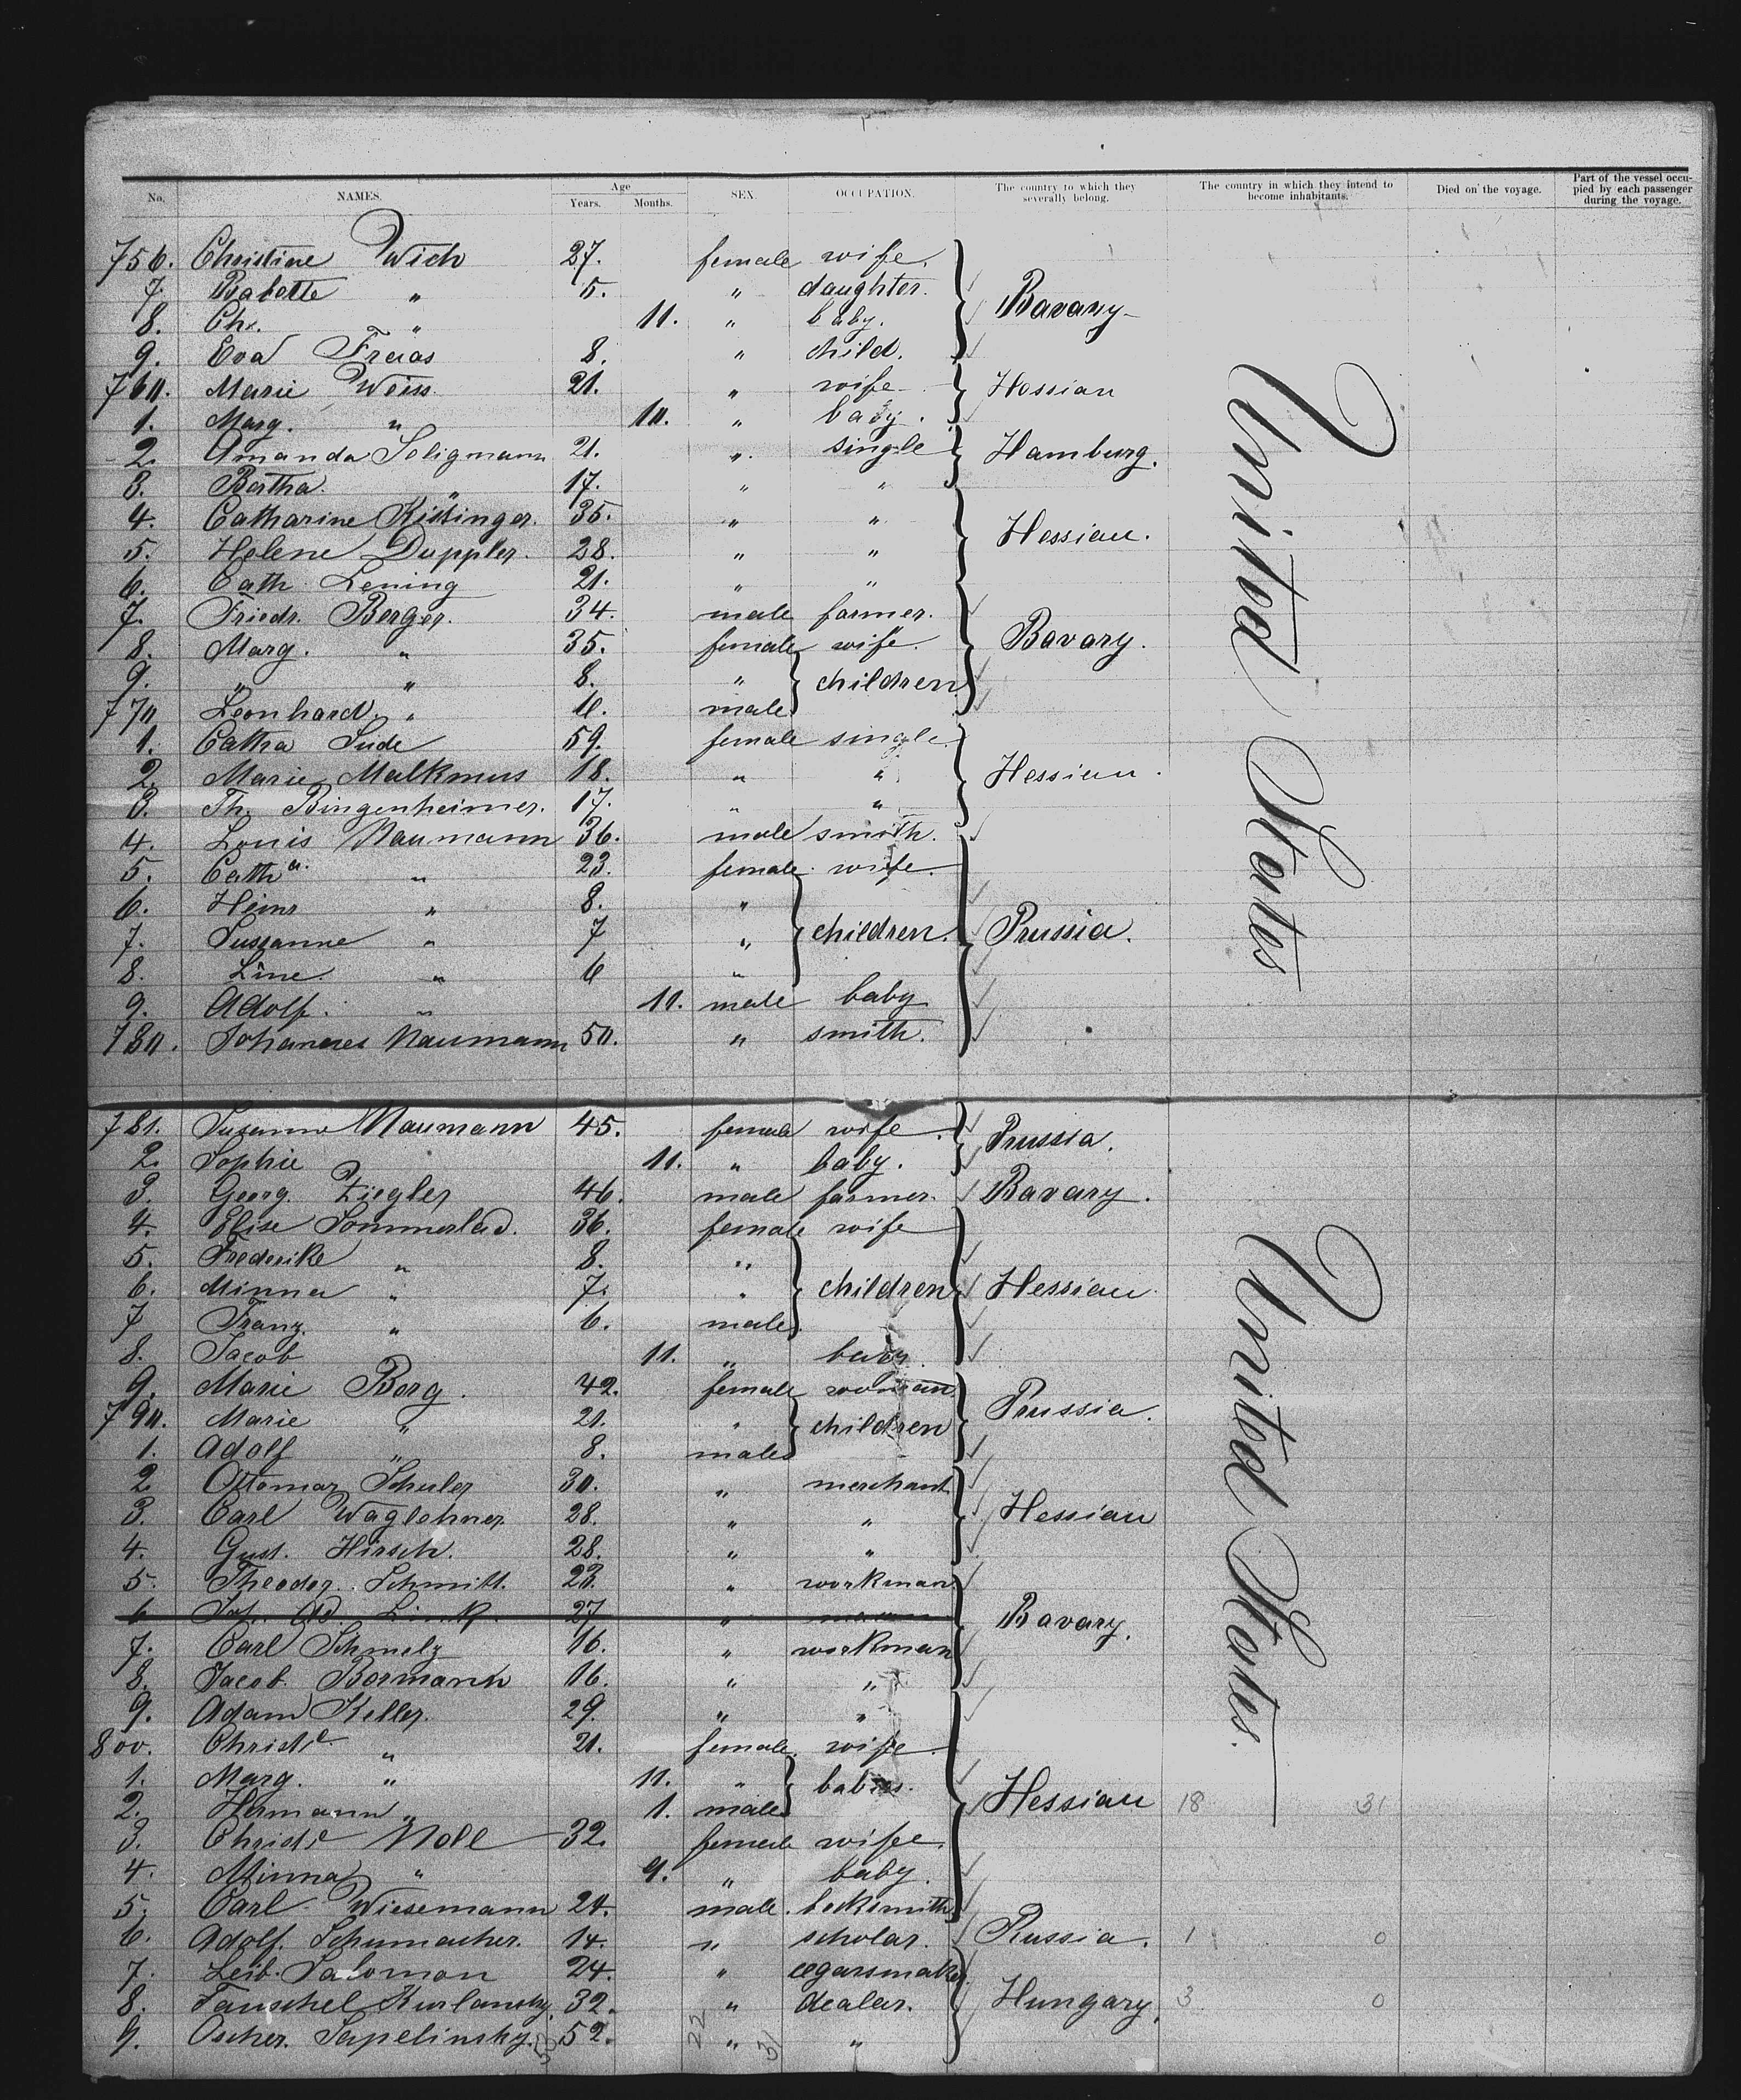 No. NAMES. Age Years. Months. SEX. OCCUPATION. The country to which they severally belong. The country in which they intend to become inhabitants. Died on the voyage. Part of the vessel occupied by each passenger during the voyage.
756. Christine Wich 27. female wife.
7. Babette " 5. " daughter. Bavary
8. Chr. " 11. " baby.
9. Eva Freias 8. " child.
760. Marie Weiss 21. " wife Hessian
1. Marg. " 10. " baby.
2. Amanda Seligmann 21. " single Hamburg.
3. Bertha " 17. " "
4. Catharine Kissinger. 35. " " Hessian.
5. Helene Duppler. 28. " "
6. Cath. Lening 21. " "
7. Friedr. Berger. 34. male farmer.
8. Marg. " 35. female wife. Bavary.
9. " " 8. " children
770 Leonhard " 6. male
1. Catha Sude 59. female single
2. Marie Malkmus 18. " " Hessian.
3. Th. Bingenheimer. 17. " "
4. Louis Naumann 36. male smith.
5. Catha. " 23. female wife.
6. Heinr " 8. "
7. Sussanne " 7 " children. Prussia.
8. Line " 6 "
9. Adolf. " 11. male baby
780. Johannes Naumann 50. " smith.
United States
781. Susanne Naumann 45. female wife. Prussia.
2. Sophie 11. " baby.
3. Georg. Ziegler 46. male farmer. Bavary.
4. Elise Sommerlad. 36. female wife
5. Frederike " 8. "
6. Minna " 7. " children Hessian.
7 Franz. " 6. male
8. Jacob 11. " baby
9. Marie Berg. 42. female woman
790. Marie " 21. " children Prussia.
1. Adolf " 8. male
2 Ottomar Schuler 30. " merchant
3. Carl Waglehner 28. " " Hessian
4. Gust. Hirsch. 28. " "
5. Theodor. Schmitt. 23. " workman
6 Joh. Ad. Link. 27 " Bavary.
7. Carl Schmelz 16. " workman
8. Jacob. Bormann 16. " "
9. Adam Keller. 29. " "
800. Christe " 21. female wife
1. Marg. " 11. " babies.
2. Hermann " 1. male Hessian 18 31
3. Christe Noll 32. female wife.
4. Minna " 9. " baby.
5. Carl Wiesemann 24. male. locksmith
6. Adolf. Schumacher. 14. " scholar. Russia. 1 0
7. Leib. Salomon 24. " cegarsmaker
8. Tauschel Kurlansky. 32. " dealer. Hungary. 3 0
9. Oscher. Sapelinsky. 52. " "
53 22 31
United States.